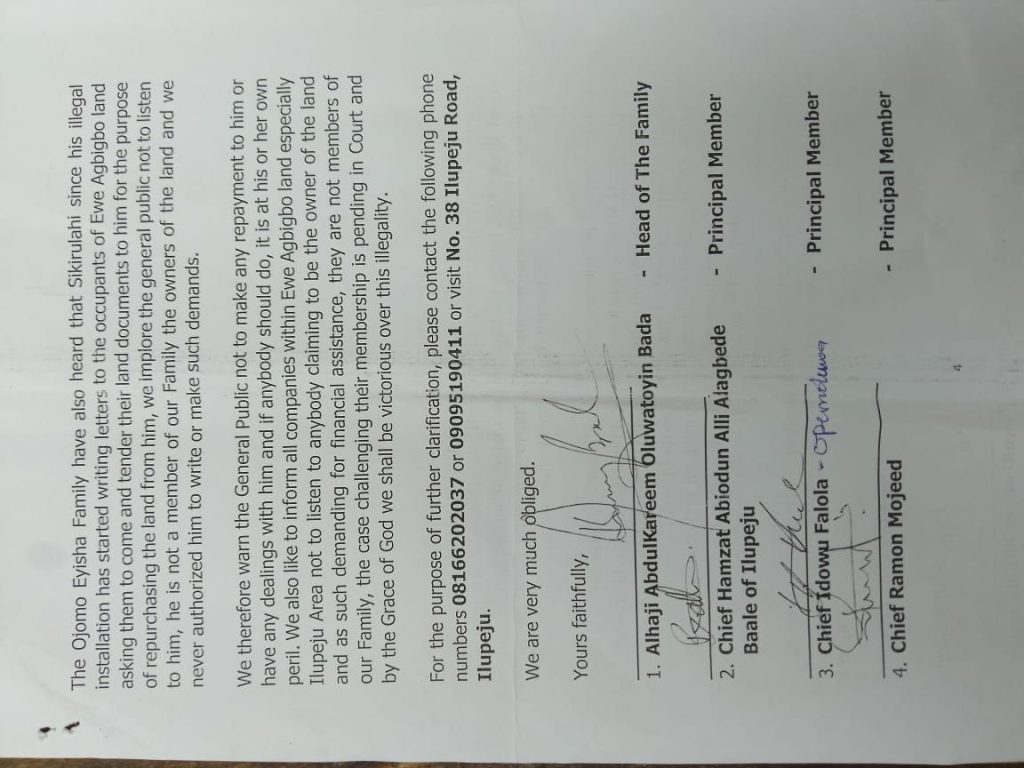 The Ojomo Eyisha Family have also heard that Sikirulahi since his illegal
installation has started writing letters to the occupants of Ewe Agbigbo land
asking them to come and tender their land documents to him for the purpose
of repurchasing the land from him, we implore the general public not to listen
to him, he is not a member of our Family the owners of the land and we
never authorized him to write or make such demands.
We therefore warn the General Public not to make any repayment to him or
have any dealings with him and if anybody should do, it is at his or her own
peril. We also like to inform all companies within Ewe Agbigbo land especially
Ilupeju Area not to listen to anybody claiming to be the owner of the land
and as such demanding for financial assistance, they are not members of
our Family, the case challenging their membership is pending in Court and
by the Grace of God we shall be victorious over this illegality.
For the purpose of further clarification, please contact the following phone
numbers 08166202037 or 09095190411 or visit No. 38 Ilupeju Road,
Ilupeju.
We are very much obliged.
Yours faithfully,
1. Alhaji AbdulKareem Oluwatoyin Bada - Head of The Family
2. Chief Hamzat Abiodun Alli Alagbede - Principal Member
Baale of Ilupeju
3. Chief Idowu Falola - - Principal Member
4. Chief Ramon Mojeed - Principal Member
4